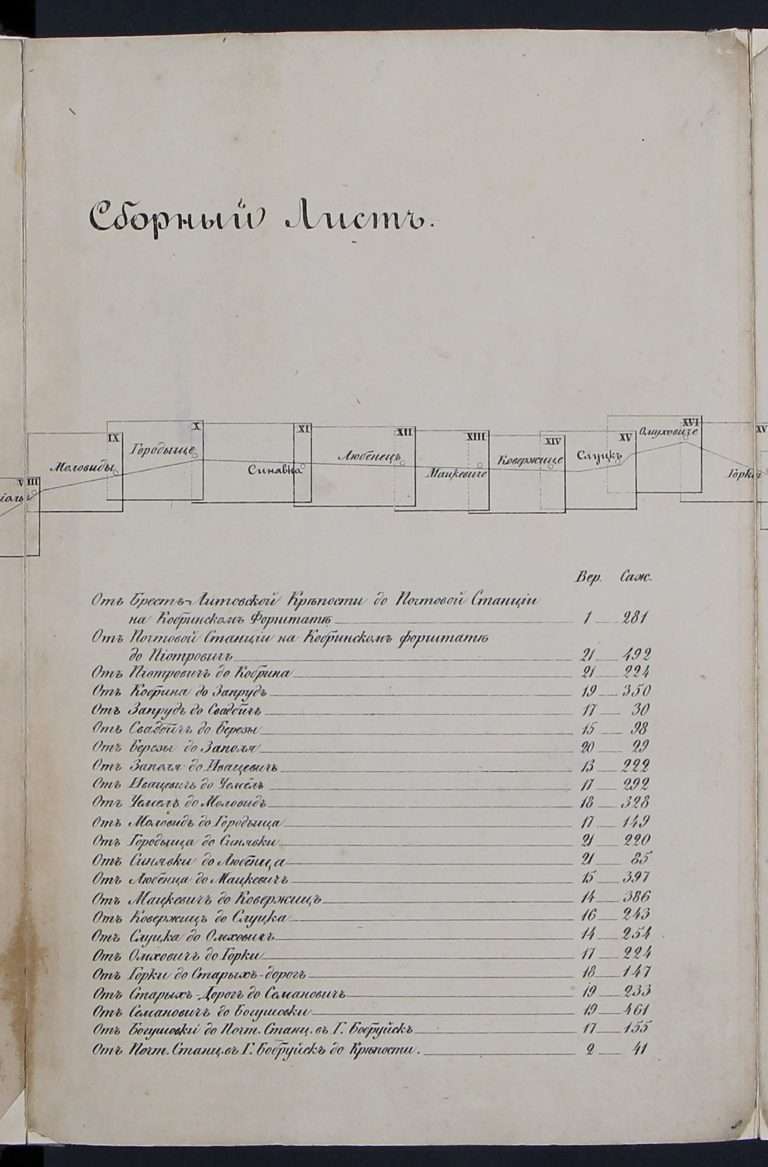 Сборный Листъ.
VIII
IX
Моловиды
X
Городыще
XI
Синявка
XII
Любѣнецъ
XIII
Мацкевиче
XIV
Ковержице
XV
Слуцкъ
XVI
Омуховизе
Горки
Вер. Саж.
Отъ Брестъ-Литовской Крѣпости до Почтовой Станціи
на Кобринскомъ Форштатѣ 1 281
Отъ Почтовой Станціи на Кобринскомъ форштатѣ
до Піотровичъ 21 492
Отъ Піотровичъ до Кобрина 21 224
Отъ Кобрина до Запрудъ 19 350
Отъ Запрудъ до Свадбичъ 17 30
Отъ Свадбичъ до Березы 15 98
Отъ Березы до Заполя 20 29
Отъ Заполя до Ивацевичъ 13 222
Отъ Ивацевичъ до Чемелъ 17 292
Отъ Чемелъ до Моловидъ 18 328
Отъ Моловидъ до Городыща 17 149
Отъ Городыща до Синявки 21 220
Отъ Синявки до Любенца 21 85
Отъ Любенца до Мацкевичъ 15 397
Отъ Мацкевичъ до Ковержицъ 14 386
Отъ Ковержицъ до Слуцка 16 243
Отъ Слуцка до Омховичъ 14 254
Отъ Омховичъ до Горки 17 224
Отъ Горки до Старыхъ-дорогъ 18 147
Отъ Старыхъ-Дорогъ до Семановичъ 19 233
Отъ Семановичъ до Богушовки 19 461
Отъ Богушовки до Почт. Станц. въ Г. Бобруйскъ 17 155
Отъ Почт. Станц. въ Г. Бобруйскъ до Крѣпости. 2 41